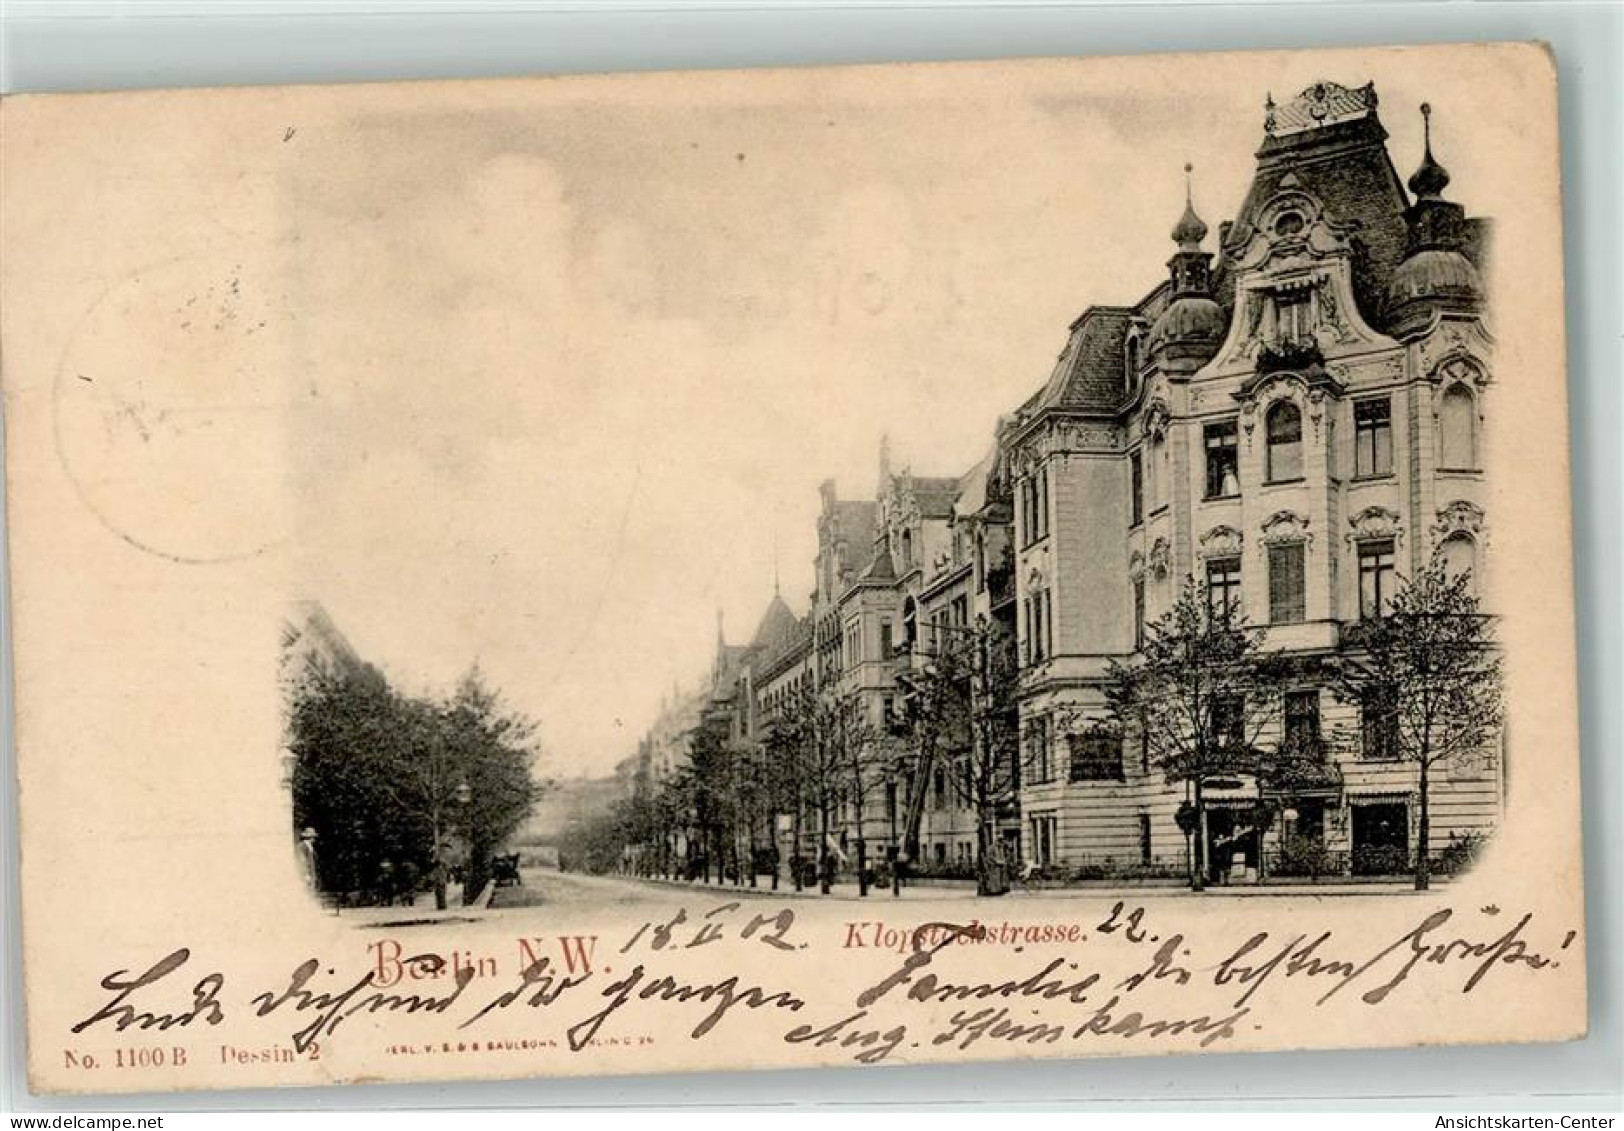 Berlin N.W. 18.II 02. Klopstockstrasse. 22.
Sende Dich und der ganzen Familie die besten Grüße!
Aug. Steinkamp.
No. 1100 B Dessin 2
BERLIN C 26
Ansichtskarten-Center